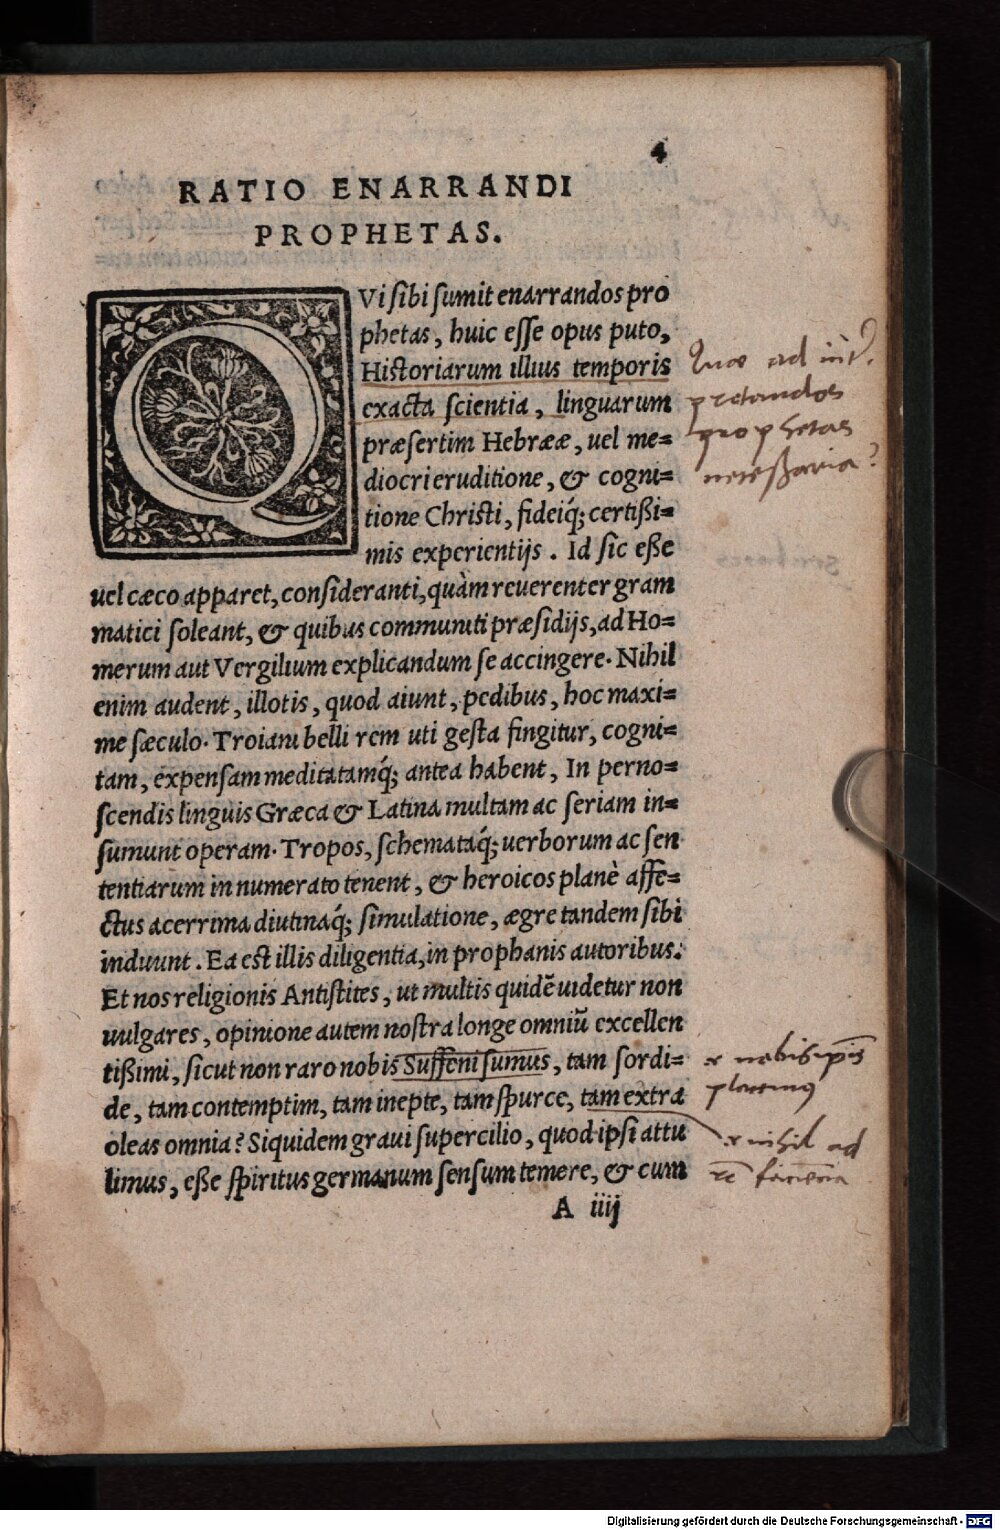 4
RATIO ENARRANDI
PROPHETAS.
QVi sibi sumit enarrandos pro
phetas, huic esse opus puto,
Historiarum illius temporis
exacta scientia, linguarum
præsertim Hebrææ, uel me=
diocri eruditione, & cogni=
tione Christi, fideiq́; certißi=
mis experientijs. Id sic eße
uel cæco apparet, consideranti, quàm reuerenter gram
matici soleant, & quibus communiti præsidijs, ad Ho=
merum aut Vergilium explicandum se accingere. Nihil
enim audent, illotis, quod aiunt, pedibus, hoc maxi=
me sæculo. Troiani belli rem uti gesta fingitur, cogni=
tam, expensam meditatamq́; antea habent, In perno=
scendis linguis Græca & Latina multam ac seriam in=
sumunt operam. Tropos, schemataq́; uerborum ac sen
tentiarum in numerato tenent, & heroicos planè affe=
ctus acerrima diutinaq́; simulatione, ægre tandem sibi
induunt. Ea est illis diligentia, in prophanis autoribus:
Et nos religionis Antistites, ut multis quidē uidetur non
uulgares, opinione autem nostra longe omniū excellen
tißimi, sicut non raro nobis Suffeni sumus, tam sordi=
de, tam contemptim, tam inepte, tam spurce, tam extra
oleas omnia? Siquidem graui supercilio, quod ipsi attu
limus, eße spiritus germanum sensum temere, & cum
A iiij
Quae ad int̄er
pretandos
prophetas
neceßaria?
nobis ip̄is
placemus
nihil ad
rē